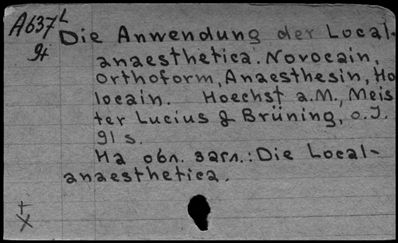 A637L
9t
Die Anwendung der Local-
anaesthetica. Novocain,
Orthoform, Anaesthesin, Ho
locain. Hoechst a.M., Meis
ter Lucius & Brüning, o.J.
91 s.
На обл. загл.: Die Local-
anaesthetica.
+
X